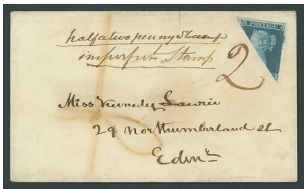 half a twopenny Stamp
imperfect Stamp
POSTAGE
2
Miss Kennedy Lawrie
29 Northumberland st
Edinr